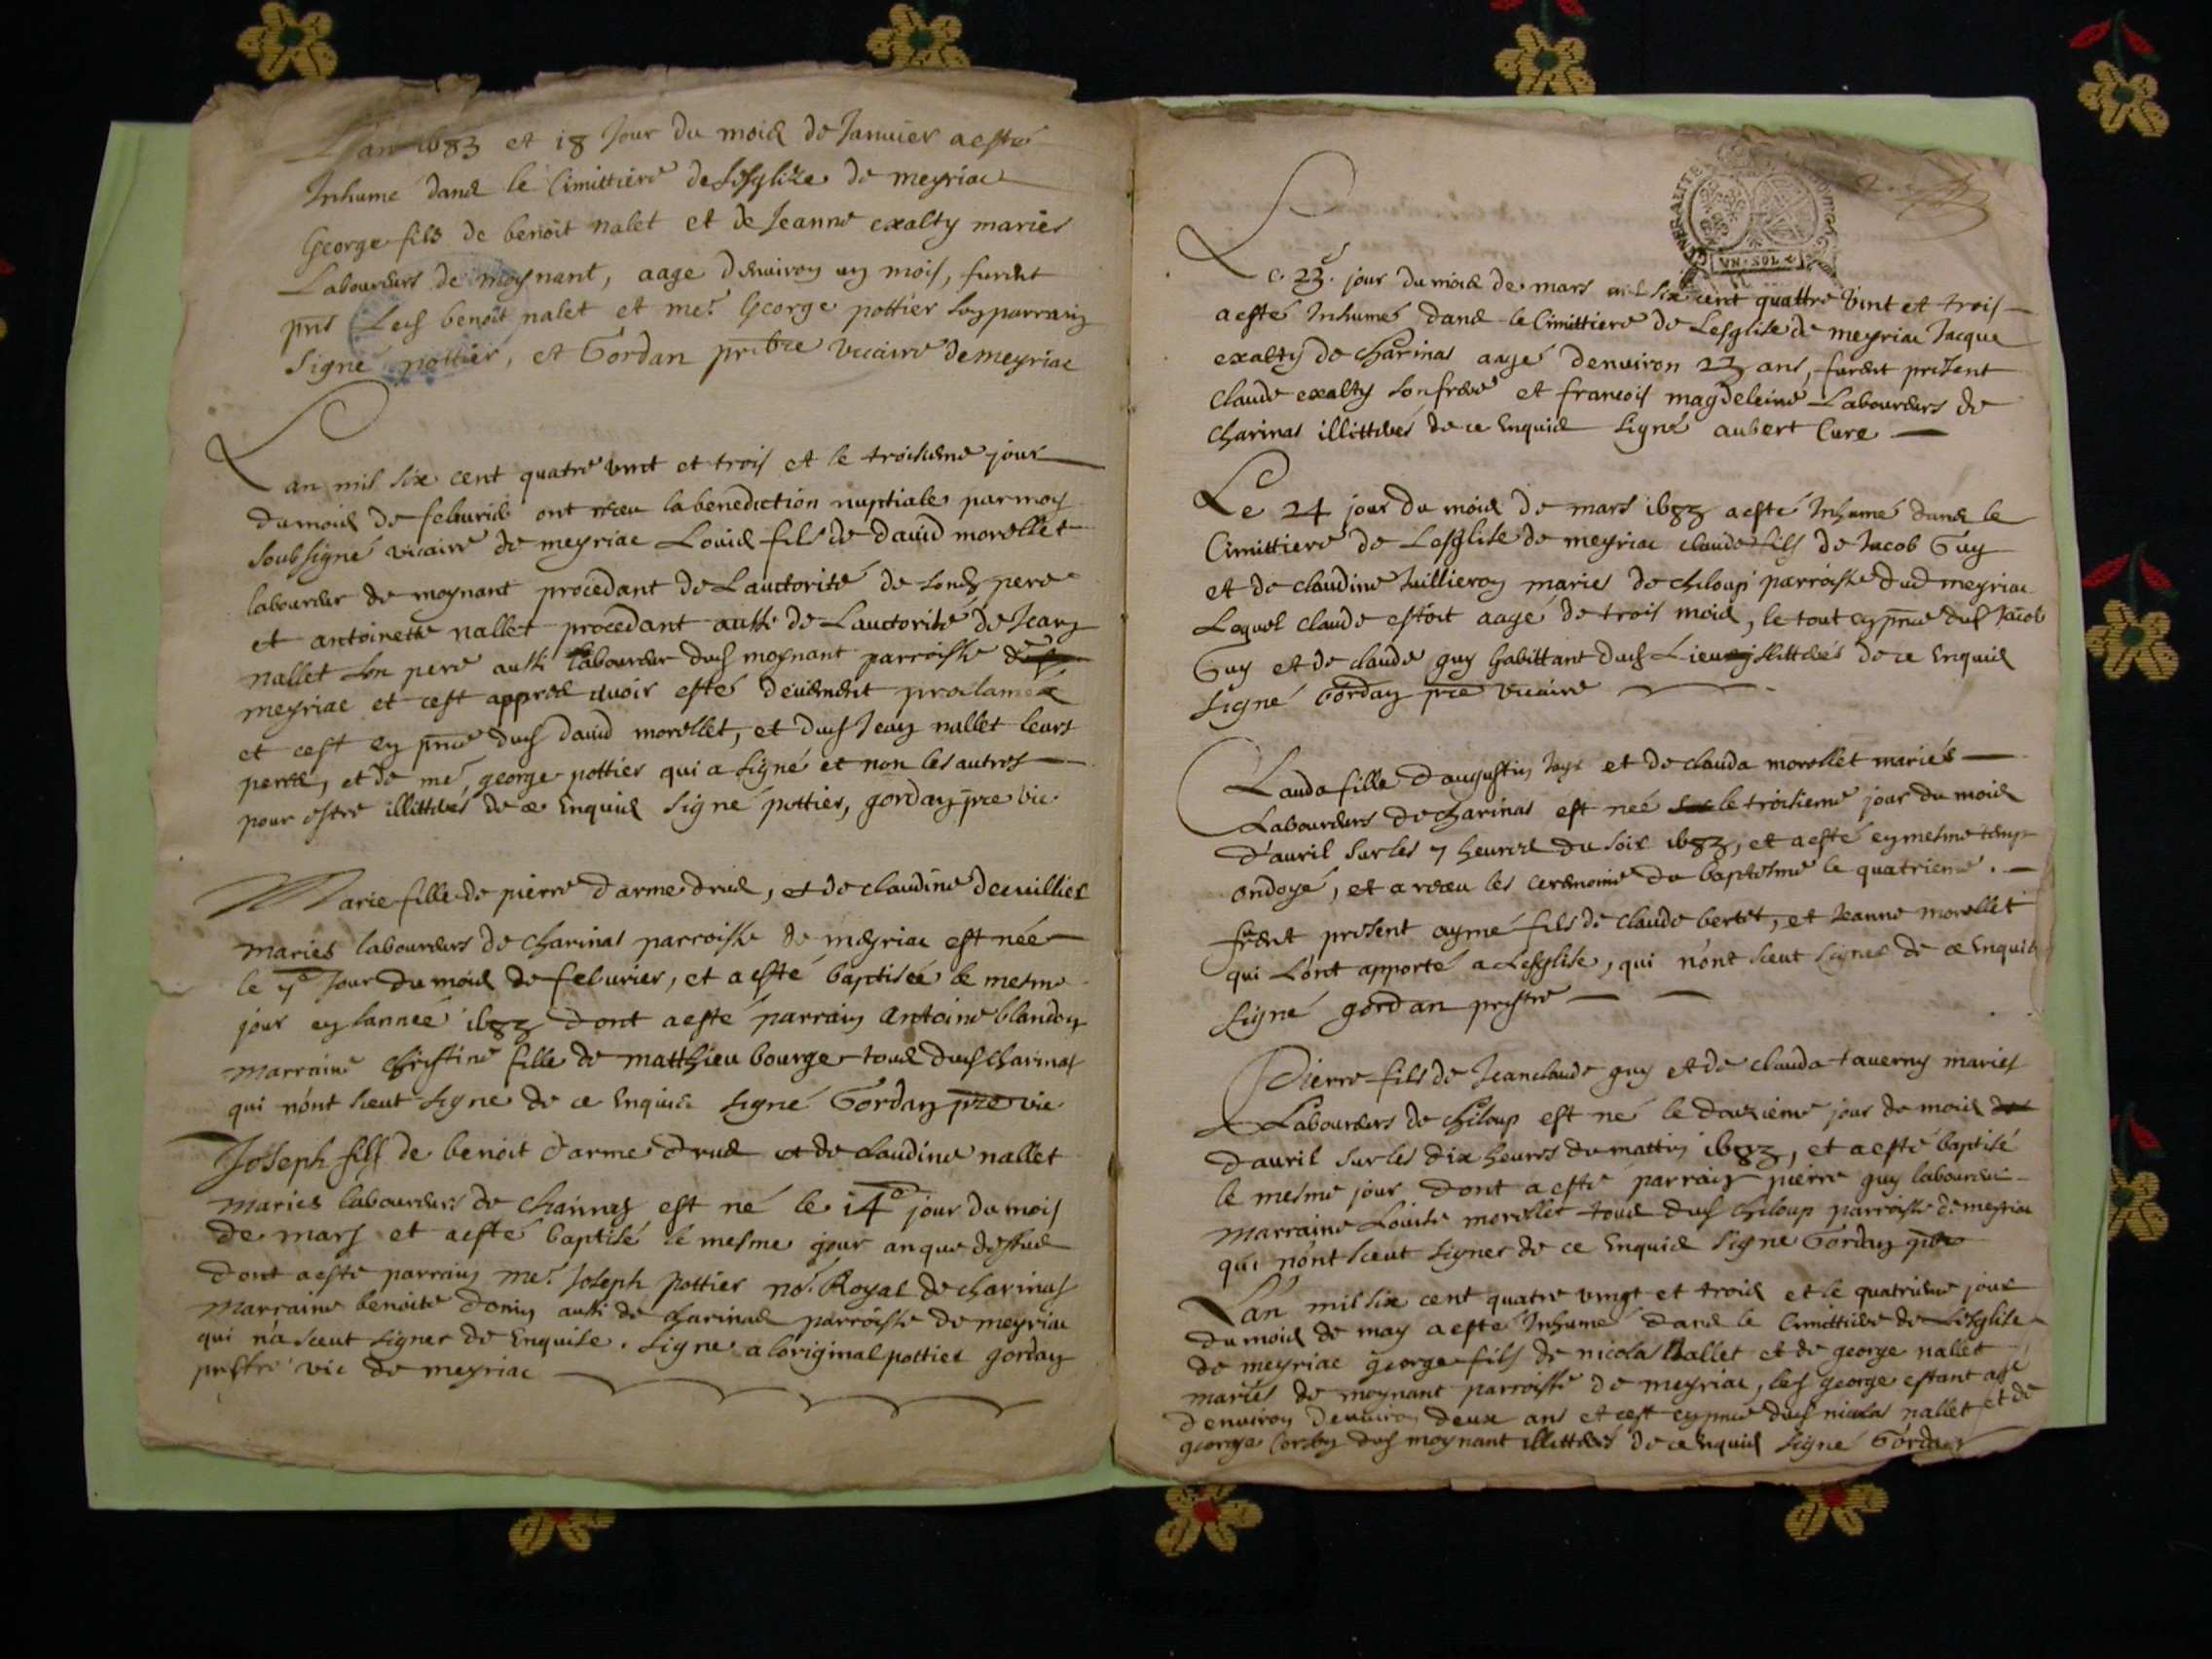 Lan 1683 et 18 Jour du mois de Januier a esté
Inhumé dans le Cimittiere de Lesglize de meyriac
George fils de benoit nalet et de Jeanne exalty mariés
Laboureurs de moynant, aagé denuiron un mois, furent
pnts Led benoit nalet et me. George pottier son parrain
signé pottier, et Gordan prebtre viccaire de meyriac
Lan mil six cent quatre vint et trois et le troisieme jour
du mois de feburier ont receu la benediction nuptiale par moy
soubsigné viccaire de meyriac Louis fils de dauid morellet
laboureur de moynant procedant de Lauctorité de sond pere
et antoinette nallet procedant aussi de Lauctorité de Jean
nallet son pere aussi laboureur dud moynant parroisse de
meyriac et cest appres auoir estés deüement proclamés
et cest en pnce dud dauid morellet, et dud Jean nallet leurs
peres, et de me, george pottier qui a signé et non les autres
pour estre illitterés de ce Enquis signé pottier, gordan pre vic
Marie fille de pierre darmedrus, et de claudine decuillier
mariés laboureurs de charinas parroisse de meyriac est née
le 7e Jour du mois de feburier, et a esté baptisée le mesme
jour en lannée 1683 dont a esté parrain Antoine blandon
marraine christine fille de matthieu bourge tous dud charinas
qui nont sceut signe de ce Enquis signé Gordan pre vic
Joseph fils de benoit darmedrus et de claudine nallet
mariés laboureurs de charinas est né le 14e jour du mois
de mars et a esté baptisé le mesme jour an que dessus
dont a esté parrain me. Joseph pottier no. Royal de charinas
marraine benoite donin aussi de charinas parroisse de meyriac
qui na sceut signer de Enquise. signe a loriginal pottier gordan
prestre vic de meyriac
GENERALITE BOVRGOG
VN SOL
Le 23e. jour du mois de mars mil six cent quattre vint et trois
a esté Inhumé dans le Cimittiere de Lesglise de meyriac Jacque
exalty de charinas aagé denuiron 23 ans, furent present
claude exalty son frere et francois magdeleine Laboureurs de
charinas illitterés de ce Enquis signé aubert Cure
Le 24 jour du mois de mars 1683 a esté Inhumé dans le
Cimittiere de Lesglise de meyriac claude fils de Jacob Guy
et de claudine Juillieron mariés de chiloup parroisse dud meyriac
Lequel claude estoit aagé de trois mois, le tout en pnce dud Jacob
Guy et de claude guy habittant dud Lieu illitterés de ce Enquis
signé Gordan pre viccaire
Clauda fille daugustin Jayr et de clauda morellet mariés
Laboureurs de charinas est née le troisieme jour du mois
d'auril sur les 7 heures du soir 1683, et a esté en mesme temp
ondoyé, et a receu les ceremonie du baptesme le quatrieme.
furent present aymé fils de claude bertet, et Jeanne morellet
qui Lont apporté a Lesglise, qui n'ont sceut signer de ce Enquis
signé gordan prestre
Pierre fils de Jeanclaude guy et de clauda tauerny mariés
Laboureurs de chiloup est né le douzieme jour de mois
dauril sur les dix heures du mattin 1683, et a esté baptisé
le mesme jour dont a esté parrain pierre guy laboureur
marraine Louise morellet tous dud chiloup parroisse de meyriac
qui nont sceut signer de ce Enquis signe Gordan pbre
Lan mil six cent quatre vingt et trois et le quatrieme jour
du mois de may a esté Inhumé dans le Cimittiere de Lesglise
de meyriac george fils de nicolas nallet et de george nallet
mariés de moynant parroisse de meyriac, led george estant agé
denuiron denuiron deux ans et cest en pnce dud nicolas nallet et de
george dud moynant illitterés de ce Enquis signé Gordan